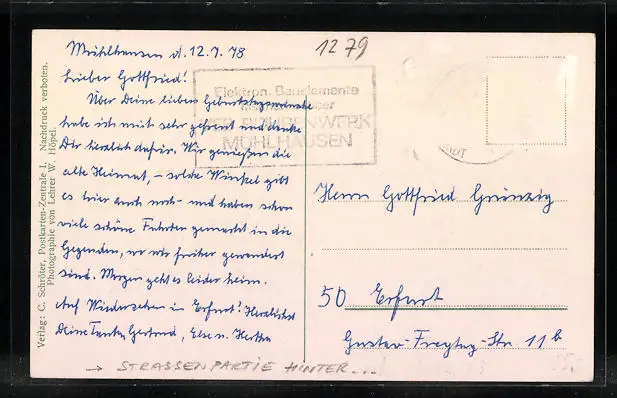 Mühlhausen d. 12.9.78
1279
Lieber Gottfried!
Über Deine lieben Geburtstagswünsche
habe ich mich sehr gefreut und danke
Dir herzlich dafür. Wir genießen die
alte Heimat, – solche Winkel gibt
es hier auch noch – und haben schon
viele schöne Fahrten gemacht in die
Gegenden, wo wir früher gewandert
sind. Morgen geht es leider heim.
Auf Wiedersehen in Erfurt! Herzlichst
Deine Tanten Gertrud, Else u. Hertha
Elektron. Bauelemente
VEB RÖHRENWERK
MÜHLHAUSEN
Herrn Gottfried
50 Erfurt
Gustav-Freytag-Str 11b
→ STRASSENPARTIE HINTER...
Verlag: C. Schröter, Postkarten-Zentrale I. Nachdruck verboten.
Photographie von Lehrer W. Höpel.